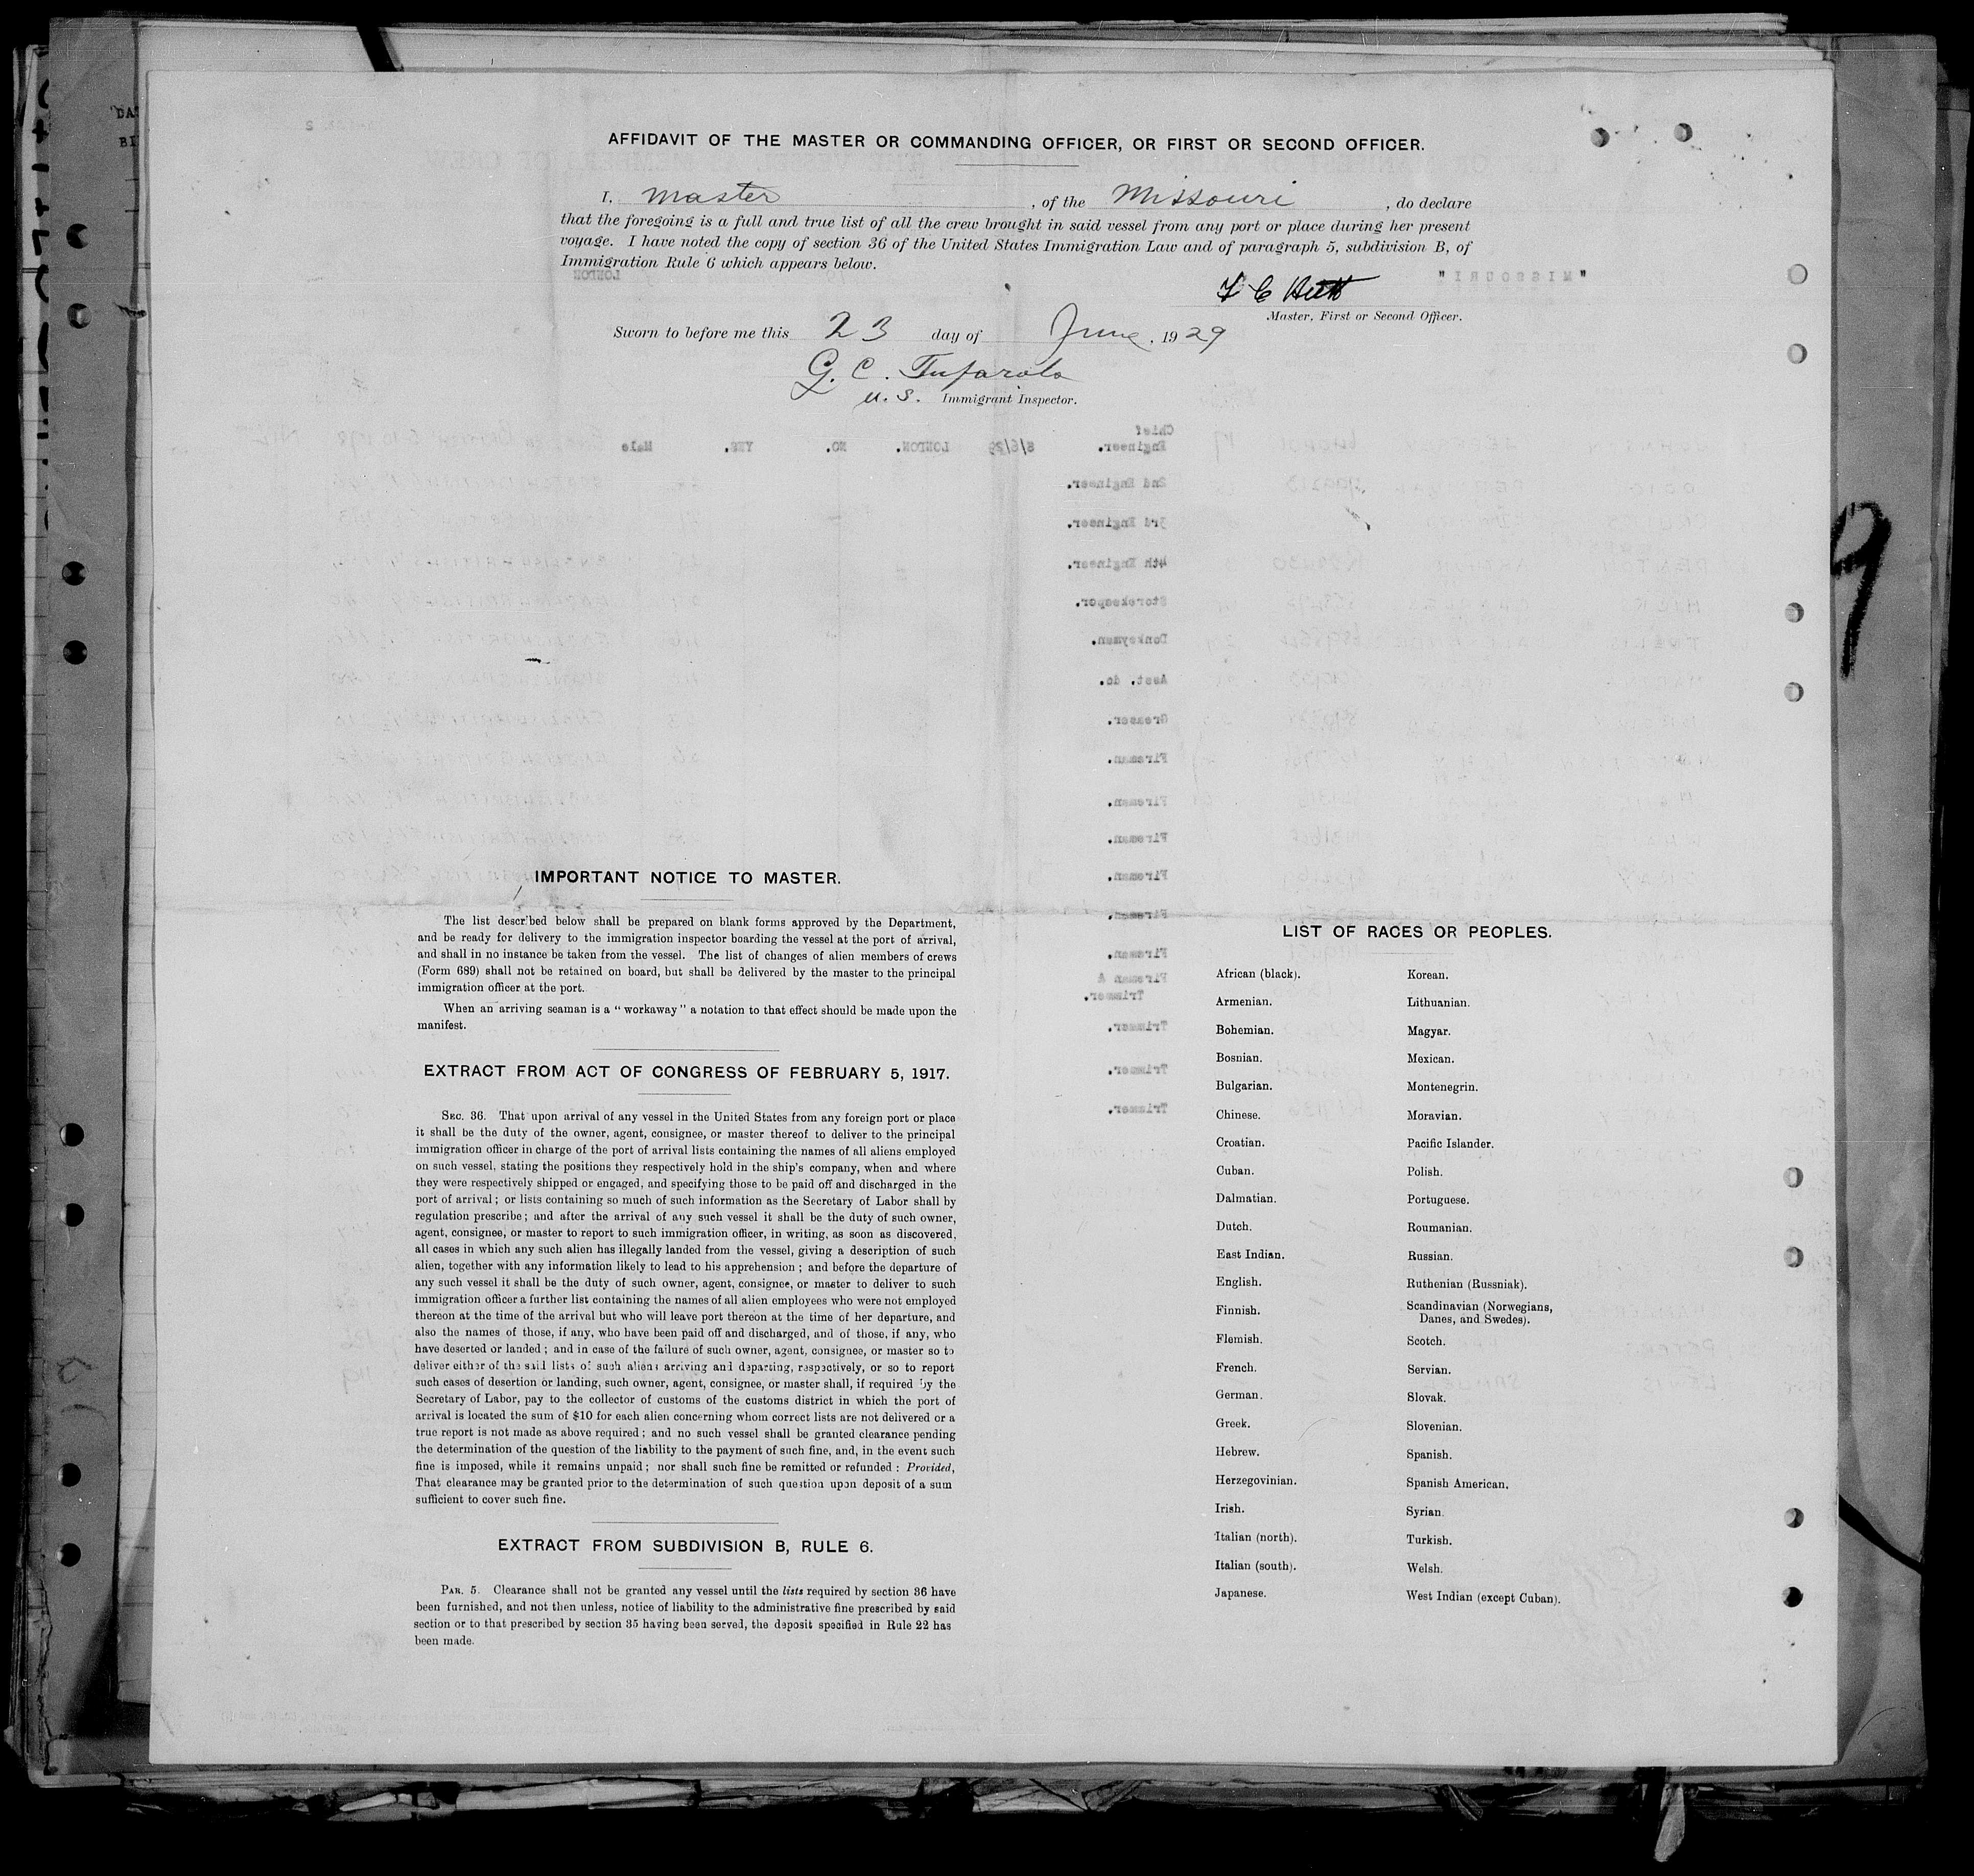 AFFIDAVIT OF THE MASTER OR COMMANDING OFFICER, OR FIRST OR SECOND OFFICER.
I, Master, of the Missouri, do declare
that the foregoing is a full and true list of all the crew brought in said vessel from any port or place during her present
voyage. I have noted the copy of section 36 of the United States Immigration Law and of paragraph 5, subdivision B, of
Immigration Rule 6 which appears below.
Master, First or Second Officer.
Sworn to before me this 23 day of June, 1929
G. C.
U. S. Immigrant Inspector.
IMPORTANT NOTICE TO MASTER.
The list described below shall be prepared on blank forms approved by the Department,
and be ready for delivery to the immigration inspector boarding the vessel at the port of arrival,
and shall in no instance be taken from the vessel. The list of changes of alien members of crews
(Form 689) shall not be retained on board, but shall be delivered by the master to the principal
immigration officer at the port.
When an arriving seaman is a "workaway" a notation to that effect should be made upon the
manifest.
EXTRACT FROM ACT OF CONGRESS OF FEBRUARY 5, 1917.
SEC. 36. That upon arrival of any vessel in the United States from any foreign port or place
it shall be the duty of the owner, agent, consignee, or master thereof to deliver to the principal
immigration officer in charge of the port of arrival lists containing the names of all aliens employed
on such vessel, stating the positions they respectively hold in the ship's company, when and where
they were respectively shipped or engaged, and specifying those to be paid off and discharged in the
port of arrival; or lists containing so much of such information as the Secretary of Labor shall by
regulation prescribe; and after the arrival of any such vessel it shall be the duty of such owner,
agent, consignee, or master to report to such immigration officer, in writing, as soon as discovered,
all cases in which any such alien has illegally landed from the vessel, giving a description of such
alien, together with any information likely to lead to his apprehension; and before the departure of
any such vessel it shall be the duty of such owner, agent, consignee, or master to deliver to such
immigration officer a further list containing the names of all alien employees who were not employed
thereon at the time of the arrival but who will leave port thereon at the time of her departure, and
also the names of those, if any, who have been paid off and discharged, and of those, if any, who
have deserted or landed; and in case of the failure of such owner, agent, consignee, or master so to
deliver either of the said lists of such aliens arriving and departing, respectively, or so to report
such cases of desertion or landing, such owner, agent, consignee, or master shall, if required by the
Secretary of Labor, pay to the collector of customs of the customs district in which the port of
arrival is located the sum of $10 for each alien concerning whom correct lists are not delivered or a
true report is not made as above required; and no such vessel shall be granted clearance pending
the determination of the question of the liability to the payment of such fine, and, in the event such
fine is imposed, while it remains unpaid; nor shall such fine be remitted or refunded: Provided,
That clearance may be granted prior to the determination of such question upon deposit of a sum
sufficient to cover such fine.
EXTRACT FROM SUBDIVISION B, RULE 6.
PAR. 5. Clearance shall not be granted any vessel until the lists required by section 36 have
been furnished, and not then unless, notice of liability to the administrative fine prescribed by said
section or to that prescribed by section 35 having been served, the deposit specified in Rule 22 has
been made.
LIST OF RACES OR PEOPLES.
African (black).
Armenian.
Bohemian.
Bosnian.
Bulgarian.
Chinese.
Croatian.
Cuban.
Dalmatian.
Dutch.
East Indian.
English.
Finnish.
Flemish.
French.
German.
Greek.
Hebrew.
Herzegovinian.
Irish.
Italian (north).
Italian (south).
Japanese.
Korean.
Lithuanian.
Magyar.
Mexican.
Montenegrin.
Moravian.
Pacific Islander.
Polish.
Portuguese.
Roumanian.
Russian.
Ruthenian (Russniak).
Scandinavian (Norwegians,
Danes, and Swedes).
Scotch.
Servian.
Slovak.
Slovenian.
Spanish.
Spanish American.
Syrian.
Turkish.
Welsh.
West Indian (except Cuban).